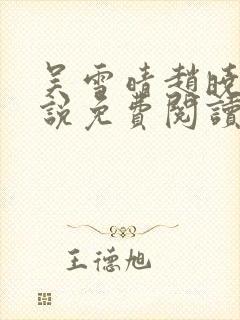 吴雪晴趙曉
說免費閱讀
王德旭